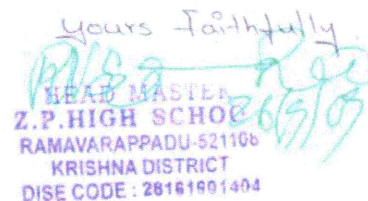 yours faithfully
HEAD MASTER
Z.P.HIGH SCHOO
RAMAVARAPPADU-521108
KRISHNA DISTRICT
DISE CODE : 28161691404